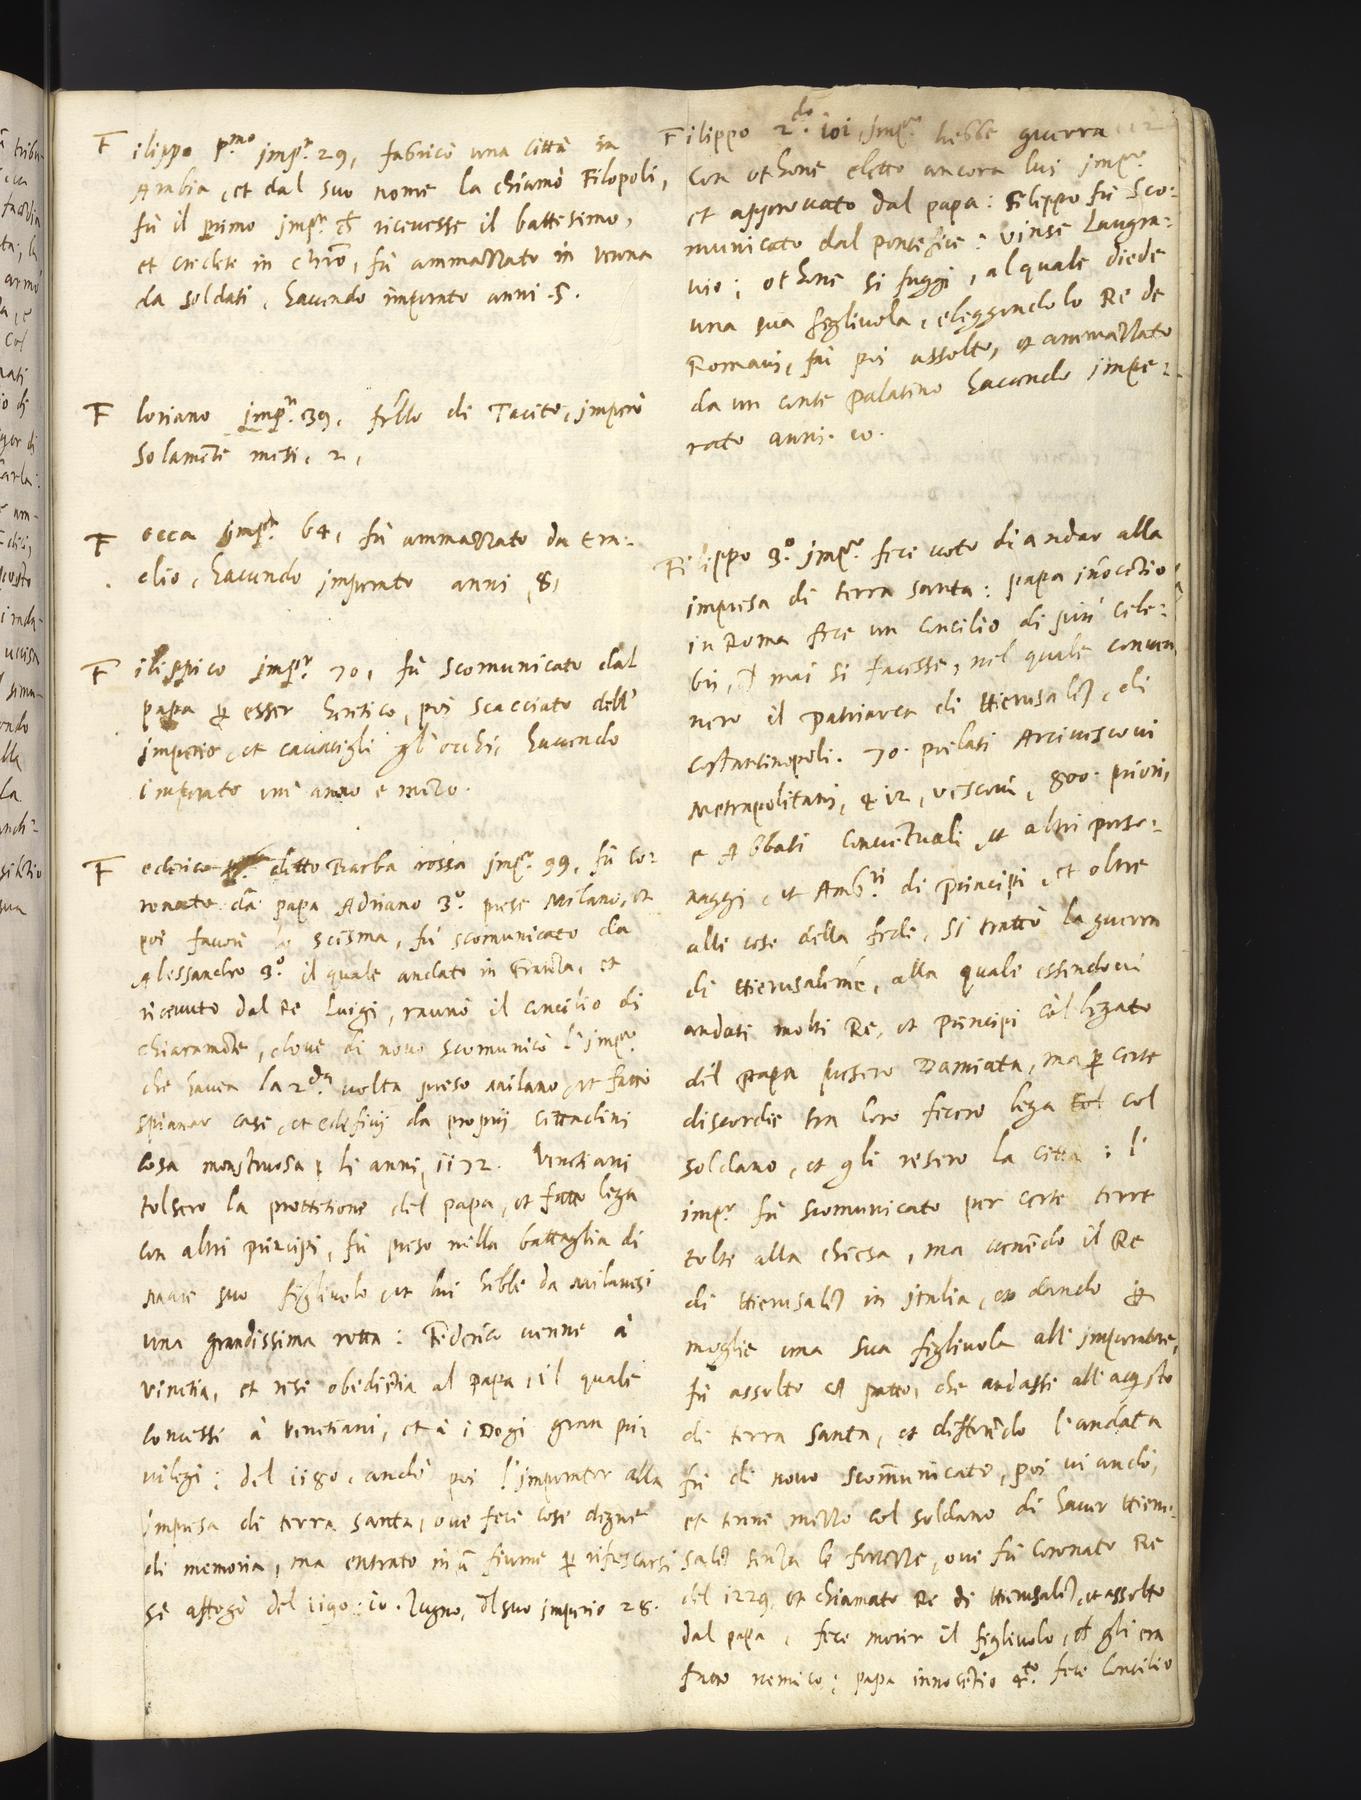 Filippo p.mo jmp.r 29, fabricò una città in
Arabia, et dal suo nome la chiamò Filopoli,
fù il primo jmp.r ch' ricevesse il battesimo,
et credete in chro, fù ammazzato in verona
da soldati, havendo imperato anni .5.
Floriano jmp.r 39, frello di Tacito, imperò
solamente mesi, 2,
Focca jmp.r 64, fù ammazzato da Era-
clio, havendo imperato anni, 8,
Filippico jmp.r 70, fù scomunicato dal
papa per esser heretico, poi scacciato dell'
imperio, et cavatigli gl'occhi, havendo
imperato un' anno e mezo.
Federico ditto Barba rossa jmp.r 99, fù co-
ronato da papa Adriano 3.o prese Milano, et
poi favorì lo scisma, fù scomunicato da
Alessandro 3.o il quale andato in Franza, et
ricevuto dal Re Luigi, raunò il concilio di
chiaramōte, dove di novo scomunicò l'imp.r
che havea la 2.da volta preso milano, et fatto
spianar case, et edefitij da proprij cittadini
cosa monstruosa li anni, 1172. Venetiani
tolsero la prottetione del papa, et fatto lega
con altri principi, fù preso nella battaglia di
mare suo figlivolo, et lui hebbe da Milanesi
una grandissima rotta: Federico venne à
Vinetia, et rese obediētia al papa, il quale
concesse à Venetiani, et à i Dogi gran pri-
vilegi: del 1180, andò poi l'imperator alla
impresa di terra santa, ove fece cose degne
di memoria, ma entrato in ū fiume per rifrescarsi
si affogò del 1190: 10. Zugno, dl suo imperio 28.
Filippo 2.do 101, jmp.r hebbe guerra 112
con othone eletto ancora lui jmp.r
et approvato dal papa: Filippo fù sco-
municato dal pontefice: vinse Langra-
vio; othone si fuggì, al quale diede
una sua figlivola, eleggendolo Re de
Romani, fù poi assolto, et ammazzato
da un conte palatino havendo impe-
rato anni. 10.
Filippo 3.o jmp.r fece voto di andar alla
impresa di terra santa: papa inocētio
in Roma fece un concilio di più cele-
bri, ch' mai si facesse, nel quale conven-
nero il patriarca di Hierusalē, di
costantinopoli. 70. prelati Arcivescovi
Metropolitani, 412, vescovi, 800. priori,
e Abbati conventuali et altri perso-
naggi, et Amb.ri di principi, et oltre
alle cose della fede, si trattò la guerra
di Hierusalemē, alla quale essendovi
andati molti Re, et principi col legato
del papa presero Damiata, ma per certe
discordie tra loro fecero lega col col
soldano, et gli resero la città: l'
imp.r fù scomunicato per certe terre
tolte alla chiesa, ma venēdo il Re
di Hierusalē in jtalia, et dando per
moglie una sua figlivola all'imperatore,
fù assolto cō patto, che andasse all'acquisto
di terra santa, et differēdo l'andata
fù di novo scommunicato, poi vi andò,
et tenne mezzo col soldano di haver Hieru-
salē senza le fortezze, ove fù coronato Re
del 1229, et chiamato Re di Hierusalē, et assolto
dal papa, fece morir il figlivolo, ch' gli era
fatto nemico; papa innocētio 4.to fece concilio